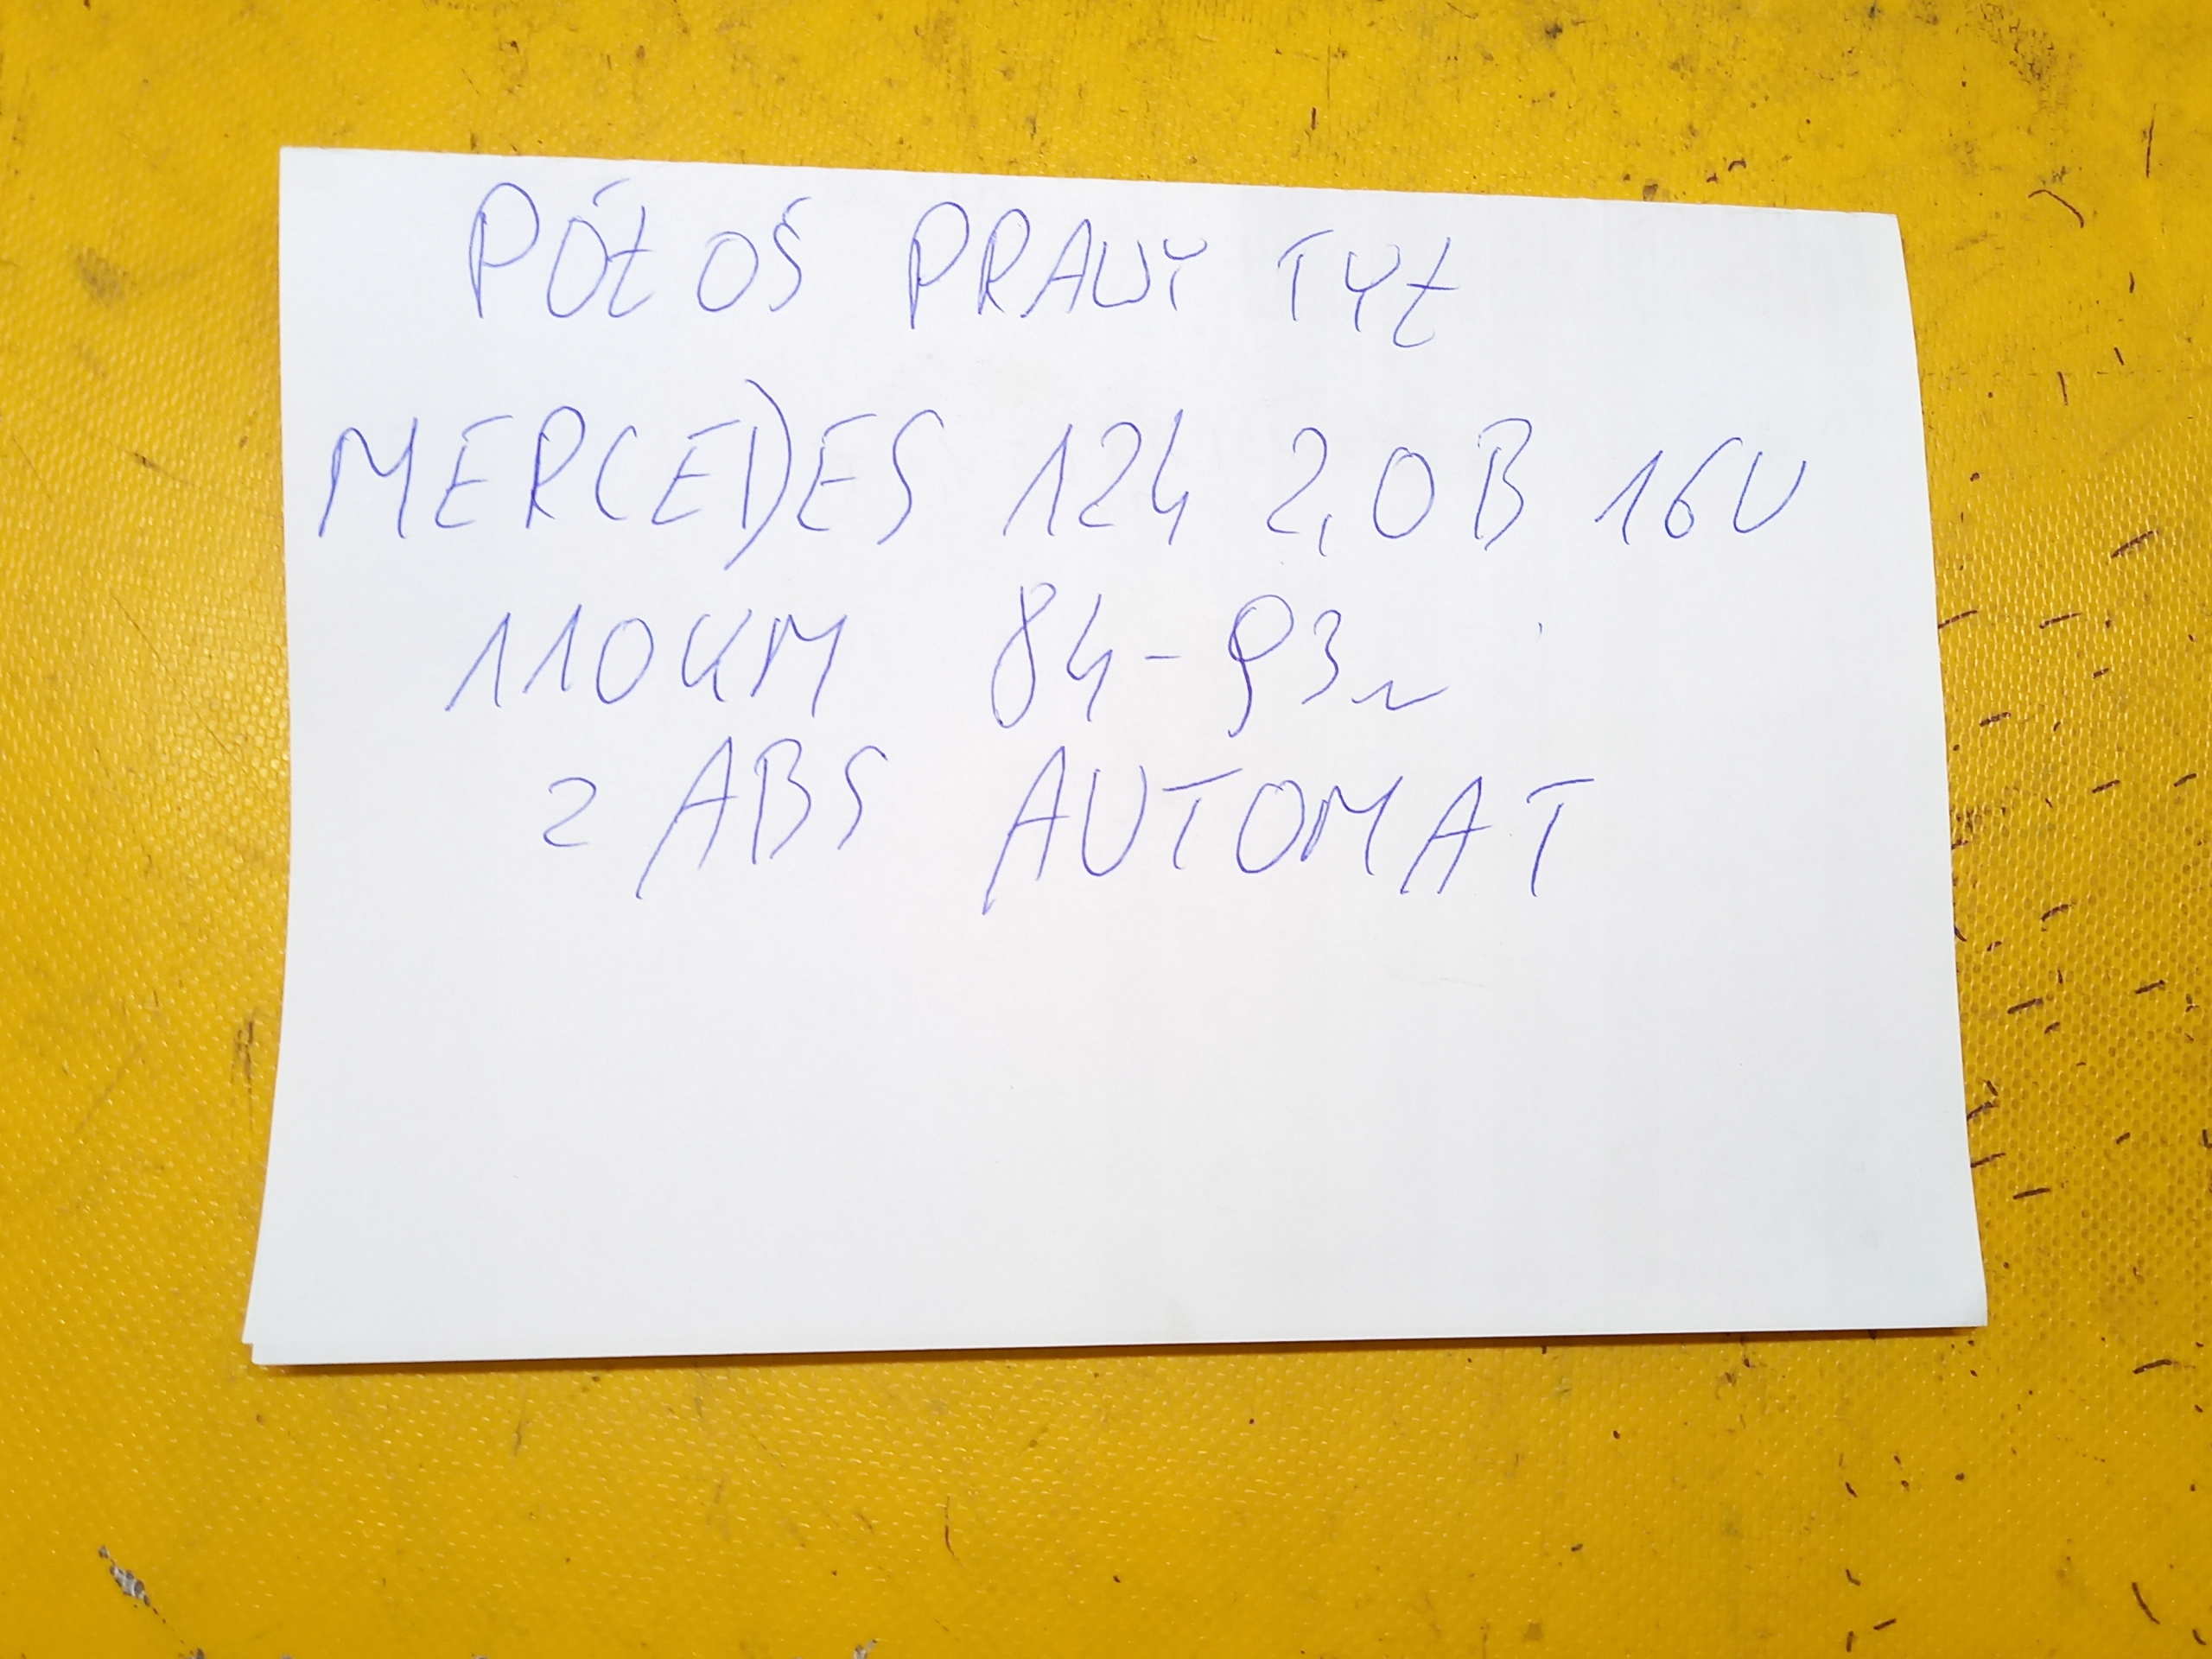 PÓŁ OŚ PRAWY TYŁ
MERCEDES 124 2,0B 16V
110KM 84-93r
z ABS AUTOMAT